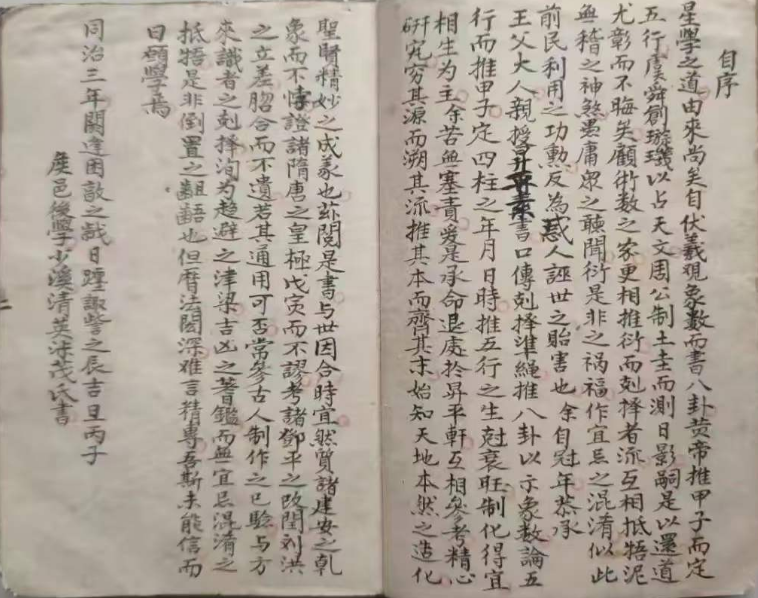 自序
星學之道由來尚矣自伏羲觀象數而書八卦黃帝推甲子而定
五行虞舜創璇璣以占天文周公制土圭而測日影嗣是以還道
尤彰而不晦矣顧術数之家更相推衍而剋擇者流互相抵牾泥
無稽之神煞愚庸衆之聽聞衍是非之禍福作宜忌之混淆似此
前民利用之功勲反為惑人誣世之貽害也余自冠年恭承
王父大人親授書口傳剋擇準繩推八卦以示象数論五
行而推甲子定四柱之年月日時推五行之生尅衰旺制化得宜
相生為主余苦無塞責爰是承命退處於昇平軒互相參考精心
研究穷其源而溯其流推其本而齊其末始知天地本然之造化
聖賢精妙之成義也茲閱是書与世因合時宜然質諸建安之乹
象而不悖證諸隋唐之皇極戊寅而不謬考諸鄧平之改閏刘洪
之立差脗合而不遺若其通用可否常參古人制作之已驗与方
來識者之剋擇洵为趋避之津梁吉凶之蓍鑑而無宜忌混淆之
抵牾是非倒置之齟齬也但曆法閎深难言精專吾斯未能信而
日願學焉
同治三年閼逢困敦之歲日躔諏訾之辰吉旦丙子
邑後學少溪清英氏書